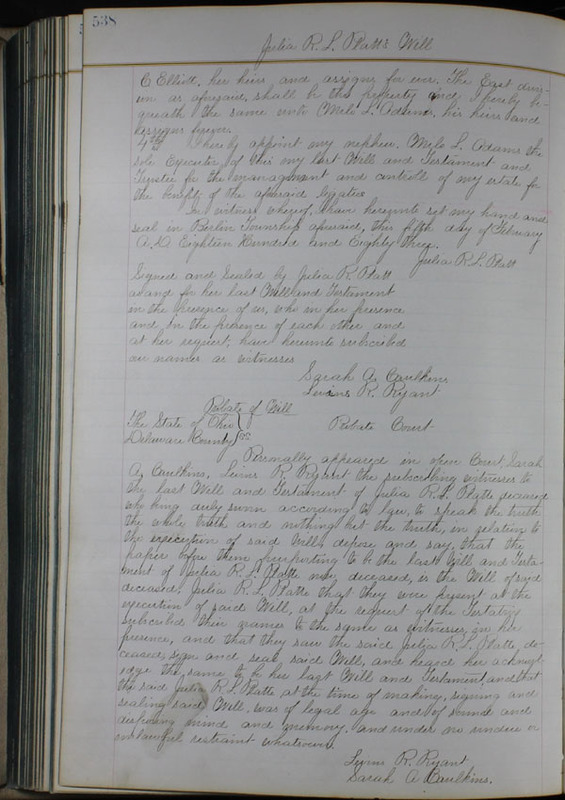 538
Julia R. L. Platt's Will
C Elliott, her heirs and assigns for ever. The East divis-
ion as aforesaid, shall be the property and I hereby be-
queath the same unto Milo L. Adams, his heirs and
assigns forever.
4th I hereby appoint my nephew, Milo L. Adams the
sole Executor of this my last Will and Testament and
Trustee for the management and controll of my estate for
the benefit of the aforesaid legatee
In witness whereof, I have hereunto set my hand and
seal in Berlin Township aforesaid, this fifth day of February
A.D. Eighteen Hundred and Eighty Three.
Julia R. L. Platt
Signed and Sealed by Julia R. Platt
as and for her last Will and Testament
in the presence of us, who in her presence
and in the presence of each other and
at her request, have hereunto subscribed
our names as witnesses
Sarah A. Caulkins
R. Ryant
Probate of Will
The State of Ohio } ss Probate Court
Delaware County
Personally appeared in open Court, Sarah
A. Caulkins, R. Ryant the subscribing witnesses to
the last Will and Testament of Julia R. L. Platte deceased
who being duly sworn according to law, to speak the truth
the whole truth and nothing but the truth, in relation to
the execution of said Will, depose and say, that the
paper before them purporting to be the last Will and Testa-
ment of Julia R. L. Platte now deceased, is the Will of said
deceased, Julia R. L. Platte that they were present at the
execution of said Will, at the request of the Testatrix
subscribed their names to the same as witnesses, in her
presence, and that they saw the said Julia R. L. Platte, de-
ceased, sign and seal said Will, and heard her acknowl-
edge the same to be her last Will and Testament, and that
the said Julia R. L. Platte at the time of making, signing and
sealing said Will, was of legal age and of sound and
disposing mind and memory, and under no undue or
unlawful restraint whatsoever
R. Ryant
Sarah A Caulkins.